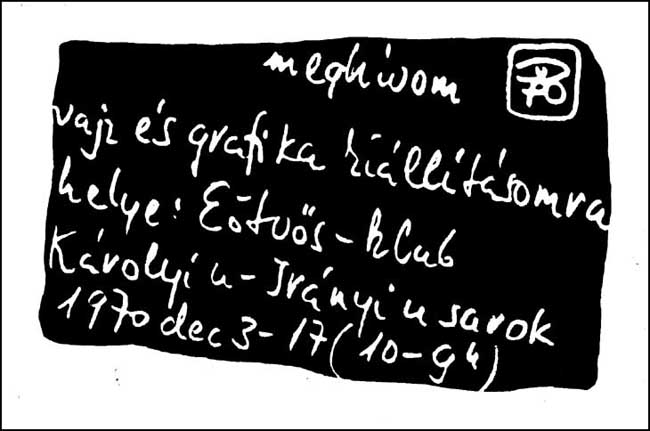 meghívom
rajz és grafika kiállításomra
helye: Eötvös-klub
Károlyi u - Irányi u sarok
1970 dec 3-17 (10-9h)